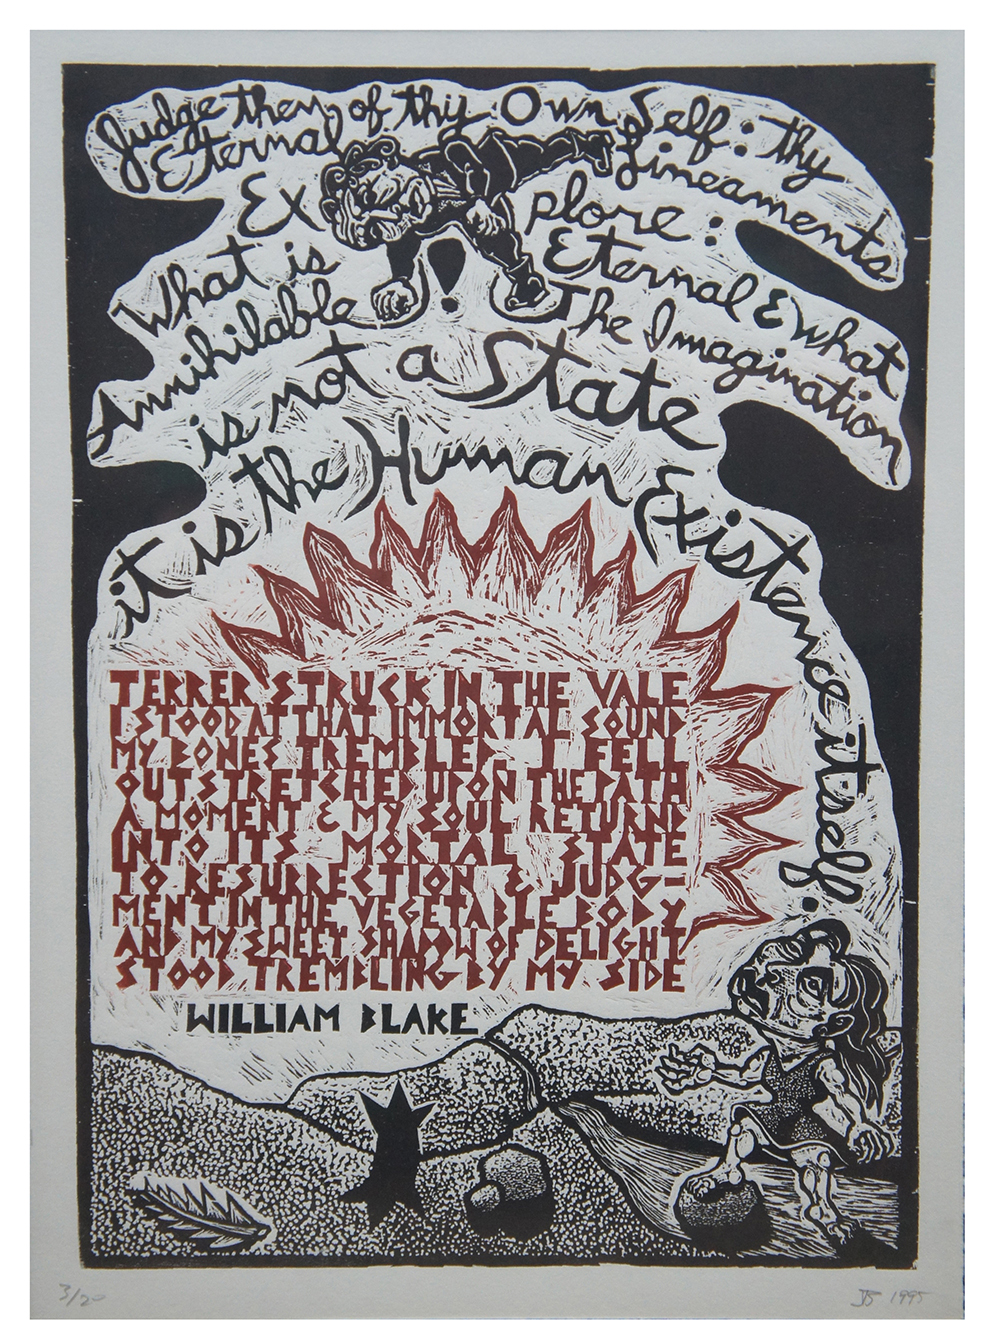 Judge then of thy Own Self: thy
Eternal Lineaments
Explore:
What is Eternal & what
Annihilable ! The Imagination
is not a State
it is the Human Existence itself.
TERRER STRUCK IN THE VALE
I STOOD AT THAT IMMORTAL SOUND
MY BONES TREMBLED. I FELL
OUTSTRETCHED UPON THE PATH
A MOMENT & MY SOUL RETURND
INTO ITS MORTAL STATE
TO RESURRECTION & JUDG-
MENT IN THE VEGETABLE BODY
AND MY SWEET SHADOW OF DELIGHT
STOOD TREMBLING BY MY SIDE
WILLIAM BLAKE
3/20 JB 1995